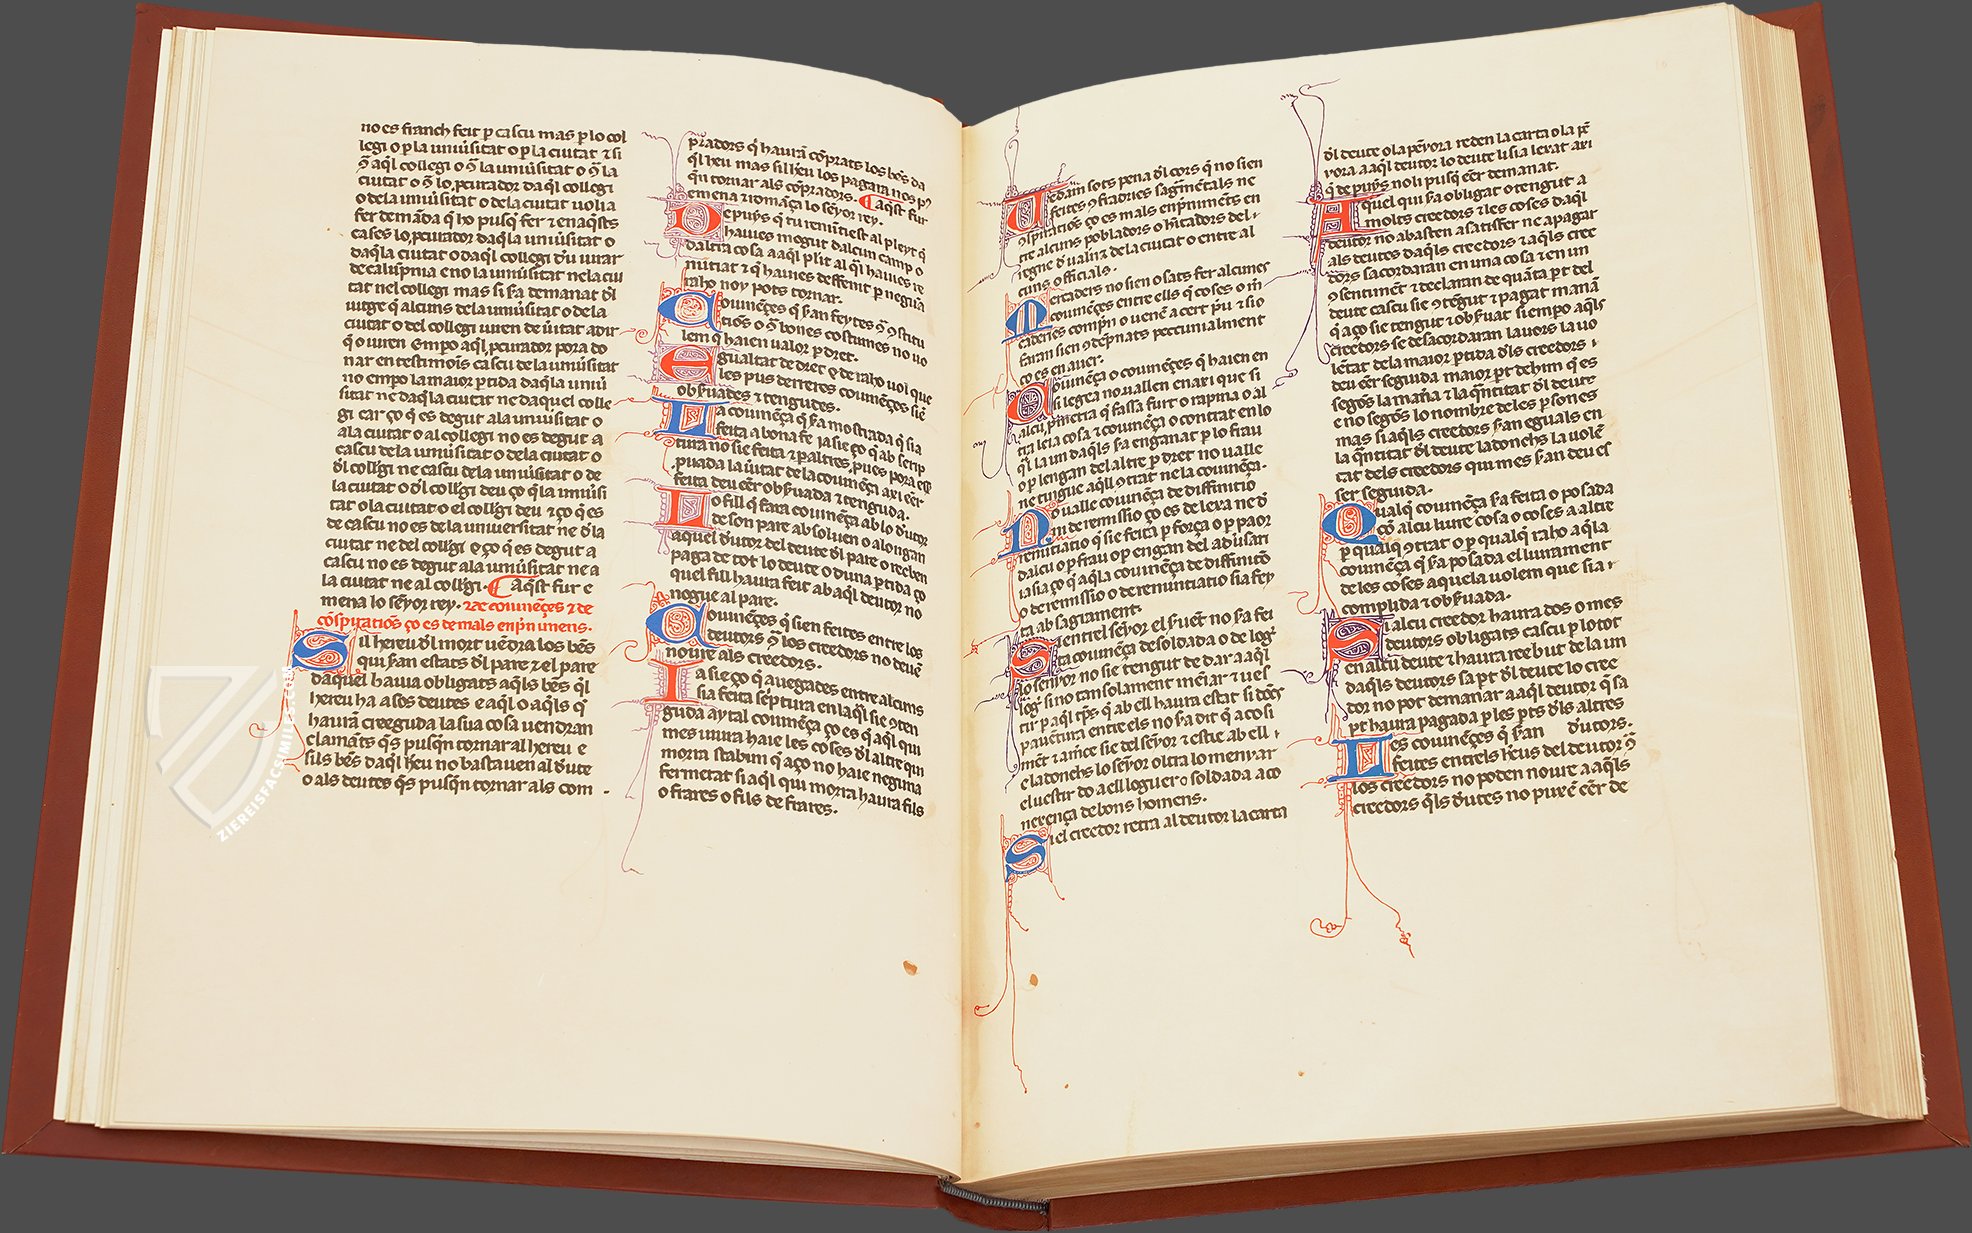 no es franch feit ꝑ caſcu mas ꝑ lo col
legi o ꝑ la uniũſitat o ꝑ la ciutat ⁊ ſi
ꝯ̃ aq̃l collegi o ꝯ̃ la uniũſitat o ꝯ̃ la
ciutat o ꝯ̃ lo, ꝓcurador daq̃l collegi
o dela uniũſitat o dela ciutat uol la
fer demãda q̃ ho puſq̃ fer ⁊ en aq̃ſts
caſes lo, ꝓcurador daq̃la uniũſitat o
daq̃la ciutat o daq̃l collegi d̃u iurar
de calũpnia e no la uniũſitat ne la ciu
tat nel collegi mas ſi ẽa demanat d̃l
iutge q̃ alcuns dela uniũſitat o de la
ciutat o del collegi iuren de ũitat adir
q̃ o iuren
nar en teſtimõis caſcu de la uniũſitat
no empo la maior ꝑtida daq̃la uniũ
ſitat ne daq̃la ciutat ne daquel colle
gi car ço q̃ es degut a la uniũſitat o
a la ciutat o al collegi no es degut a
caſcu de la uniũſitat o de la ciutat o
d̃l coll̃gi ne caſcu de la uniũſitat o de
la ciutat o d̃l coll̃gi deu ço q̃ la uniũſi
tat o la ciutat o el coll̃gi deu ⁊ ço q̃ es
de caſcu no es de la uniuerſitat ne d̃la
ciutat ne del coll̃gi e ço q̃ es degut a
caſcu no es degut a la uniũſitat ne a
la ciutat ne al coll̃gi. Aq̃ſt fur e
mena lo ſẽyor rey. De couinẽçes ⁊ de
cõſpiratiõs ço es de mals enp̃nimens.
Sil hereu d̃l mort uẽdra los bẽs
qui ẽan eſtats d̃l pare ⁊ el pare
daquel hauia obligats aq̃ls bẽs q̃l
hereu ha a ſos deutes e aq̃l o aq̃ls q̃
haurã creeguda la ſua coſa uendran
e clamãts q̃s puſq̃n tornar al hereu e
ſils bẽs daq̃l h̃eu no baſtauen al d̃ute
o als deutes q̃s puſq̃n tornar als com
pradors q̃ haurã cõprats los bẽs da
q̃l h̃eu mas ſil h̃eu los pagara nos pꝯ
q̃n tornar als cõpradors. Aq̃ſt fur
emena ⁊ romãça lo ſẽyor rey.
Depuys q̃ tu renũtieſt al pleyt q̃
hauies mogut dalcun camp o
daltra coſa a aq̃l plit al q̃l hauies re
nũtiat ⁊ q̃ hauies deffenit ꝑ negũa
raho noy pots tornar.
Couinẽçes q̃ ẽan feytes ꝯ̃ ꝯſtitu
tiõs o ꝯ̃ bones coſtumes no uo
lem q̃ haien ualor ꝑ dret.
Egualtat de dret ⁊ de raho uol que
les pus derreres couinẽçes ſiẽ
obẽuades ⁊ tengudes.
La couinẽça q̃ ẽa moſtrada q̃ ſia
feita a bona fe ia ſie ço q̃ ab ſcrip
tura no ſie feita ⁊ ꝑ altres, ꝓues pora eẽ
, ꝓuada la ũitat de la couinẽça axi cẽr
feita deu cẽr obẽuada ⁊ tenguda.
Lo fill q̃ fara couinẽça ab lo d̃utor
de ſon pare abſoluen o alongan
aquel d̃utor del deute d̃l pare o reeben
paga de tot lo deute o duna ꝑtida ço
quel fill haura feit ab aq̃l deutor no
nogue al pare.
Couinẽçes q̃ ſien feites entre los
deutors ꝯ̃ los creedors no deuẽ
noure als creedors.
Ia ſie ço q̃ auegades entre alcuns
ſia feita ſc̃ptura en la q̃l ſie ꝯten
guda aytal couinẽça ço es q̃ aq̃l qui
mes uiura haie les coſes d̃l altre qui
morra ſtabłim q̃ aço no haie neguna
fermetat ſi aq̃l qui morra haura fils
o frares o fils de frares.
Uedam ſots pena d̃l cors q̃ no ſien
feites ꝯfradries ſagramẽtals ne
ꝯſpiratiõs ço es mals enp̃nimẽts en
tre alcuns pobladors o hitadors del
regne d̃ ualñ ⁊ de la ciutat o entre al
cuns officials.
Mercaders no ſien oſats fer alcunes
couinẽçes entre ells q̃ coſes o m̃
caderies comp̃n o uenẽ a cert p̃u ⁊ ſi o
faran ſien ꝯdẽp̃nats peccunialment
ço es en auer.
Couinẽça o couinẽçes q̃ haien en
ſi legea no uallen en axi que ſi
alcu, ꝓmetra q̃ faſſa furt o rapina o al
tra leia coſa ⁊ couinẽça o contrat en lo
q̃l la un daq̃ls ẽa enganat ꝑ lo frau
o ꝑ lengan del altre ꝑ dret no ualle
ne tingue aq̃ll ꝯtrat ne la couinẽça.
No ualle couinẽça de diffinitio
ni de remiſſio ço es de lexa ne d̃
renũtiatio q̃ ſie feita ꝑ força o ꝑ paor
dalcu o ꝑ frau o ꝑ engan del aduſari
ia ſia ço q̃ aq̃la couinẽça de diffinitio
o de remiſſio o de renuntiatio ſia fey
ta ab ſagrament.
Si entrel ſẽyor el ẽuẽt no ẽa fei
ta couinẽça de ſoldada o de log̃
lo ſenyor no ſie tengut de dar a aq̃l
log̃ ſi no tan ſolament mẽiar ⁊ ueſ
tir ꝑ aq̃l tẽps q̃ ab ell haura eſtat ſi dõcs
ꝑ auẽtura entre els no ẽa dit q̃ a coſi
mẽt ⁊ a m̃ce ſie del ſẽyor ⁊ eſtie ab ell
e ladonchs lo ſẽyor oltra lo menyar
el ueſtir do a ell loguer o ſoldada a co
nexença de bons homens.
Si el creedor retra al deutor la carta
d̃l deute o la pẽyora reden la carta o la pẽ
yora a aq̃l deutor lo deute li ſia lexat axi
q̃ de puys no li puſq̃ eẽr demanat.
Aquel qui ẽa obligat o tengut a
molts creedors ⁊ les coſes daq̃l
deutor no abaſten a ſatiſfer ne a pagar
als deutes daq̃ls creedors ⁊ aq̃ls cree
dors ſacordaran en una coſa ⁊ en un
ꝯſentimẽt ⁊ declaran de quãta pt del
deute caſcu ſie ꝯtẽgut ⁊ pagat manã
q̃ aço ſie tengut ⁊ obẽuat ſi empo aq̃ls
creedors ſe deſacordaran lauors la uo
lẽtat de la maior ꝑtida d̃ls creedors
deu eẽr ſeguida maior pt dehim q̃ es
ſegõs la maña ⁊ la q̃ntitat d̃l deute
e no ſegõs lo nombre de les ꝑſones
mas ſi aq̃ls creedors ẽan eguals en
la q̃ntitat d̃l deute ladonchs la uolẽ
tat dels creedors qui mes ẽan deu eſ
ſer ſeguida.
Qualq̃ couinẽça ẽa feita o poſada
cõ alcu liure coſa o coſes a altre
ꝑ qualq̃ ꝯtrat o ꝑ qualq̃ raho aq̃la
couinẽça q̃ ẽa poſada el liurament
de les coſes aquela uolem que ſia
complida ⁊ obẽuada.
Si alcu creedor haura dos o mes
deutors obligats caſcu ꝑ lo tot
en alcũ deute ⁊ haura reebut de la un
daq̃ls deutors ſa pt d̃l deute lo cree
dor no pot demanar a aq̃l deutor q̃ ſa
pt haura pagada ꝑ les pts d̃ls altres
d̃utors.
Les couinẽçes q̃ ẽan
feites entrels h̃eus del deutor ꝯ̃
los creedors no poden noure a aq̃ls
creedors q̃ls d̃utes no puxẽ cẽr de
ZIEREISFACSIMILES.COM